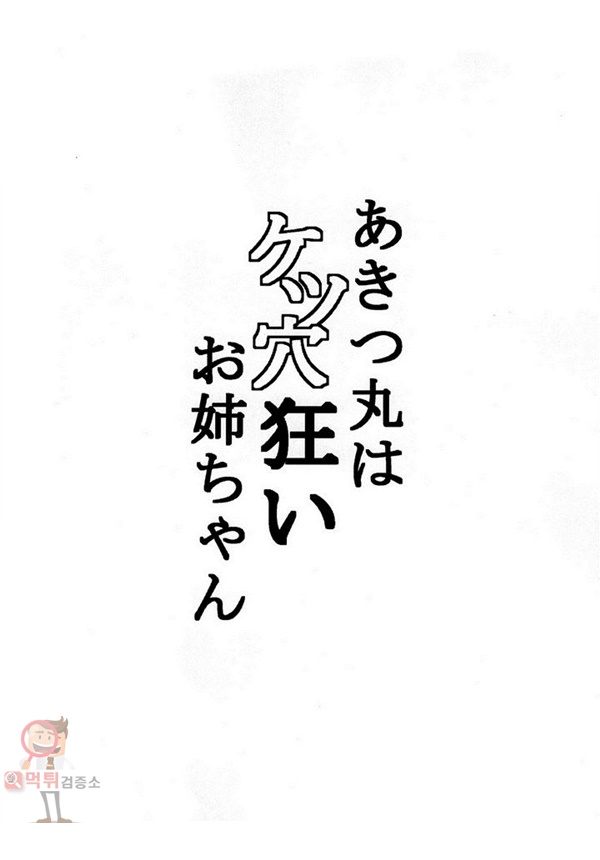 あきつ丸は
ケツ穴狂い
お姉ちゃん
먹튀검증소